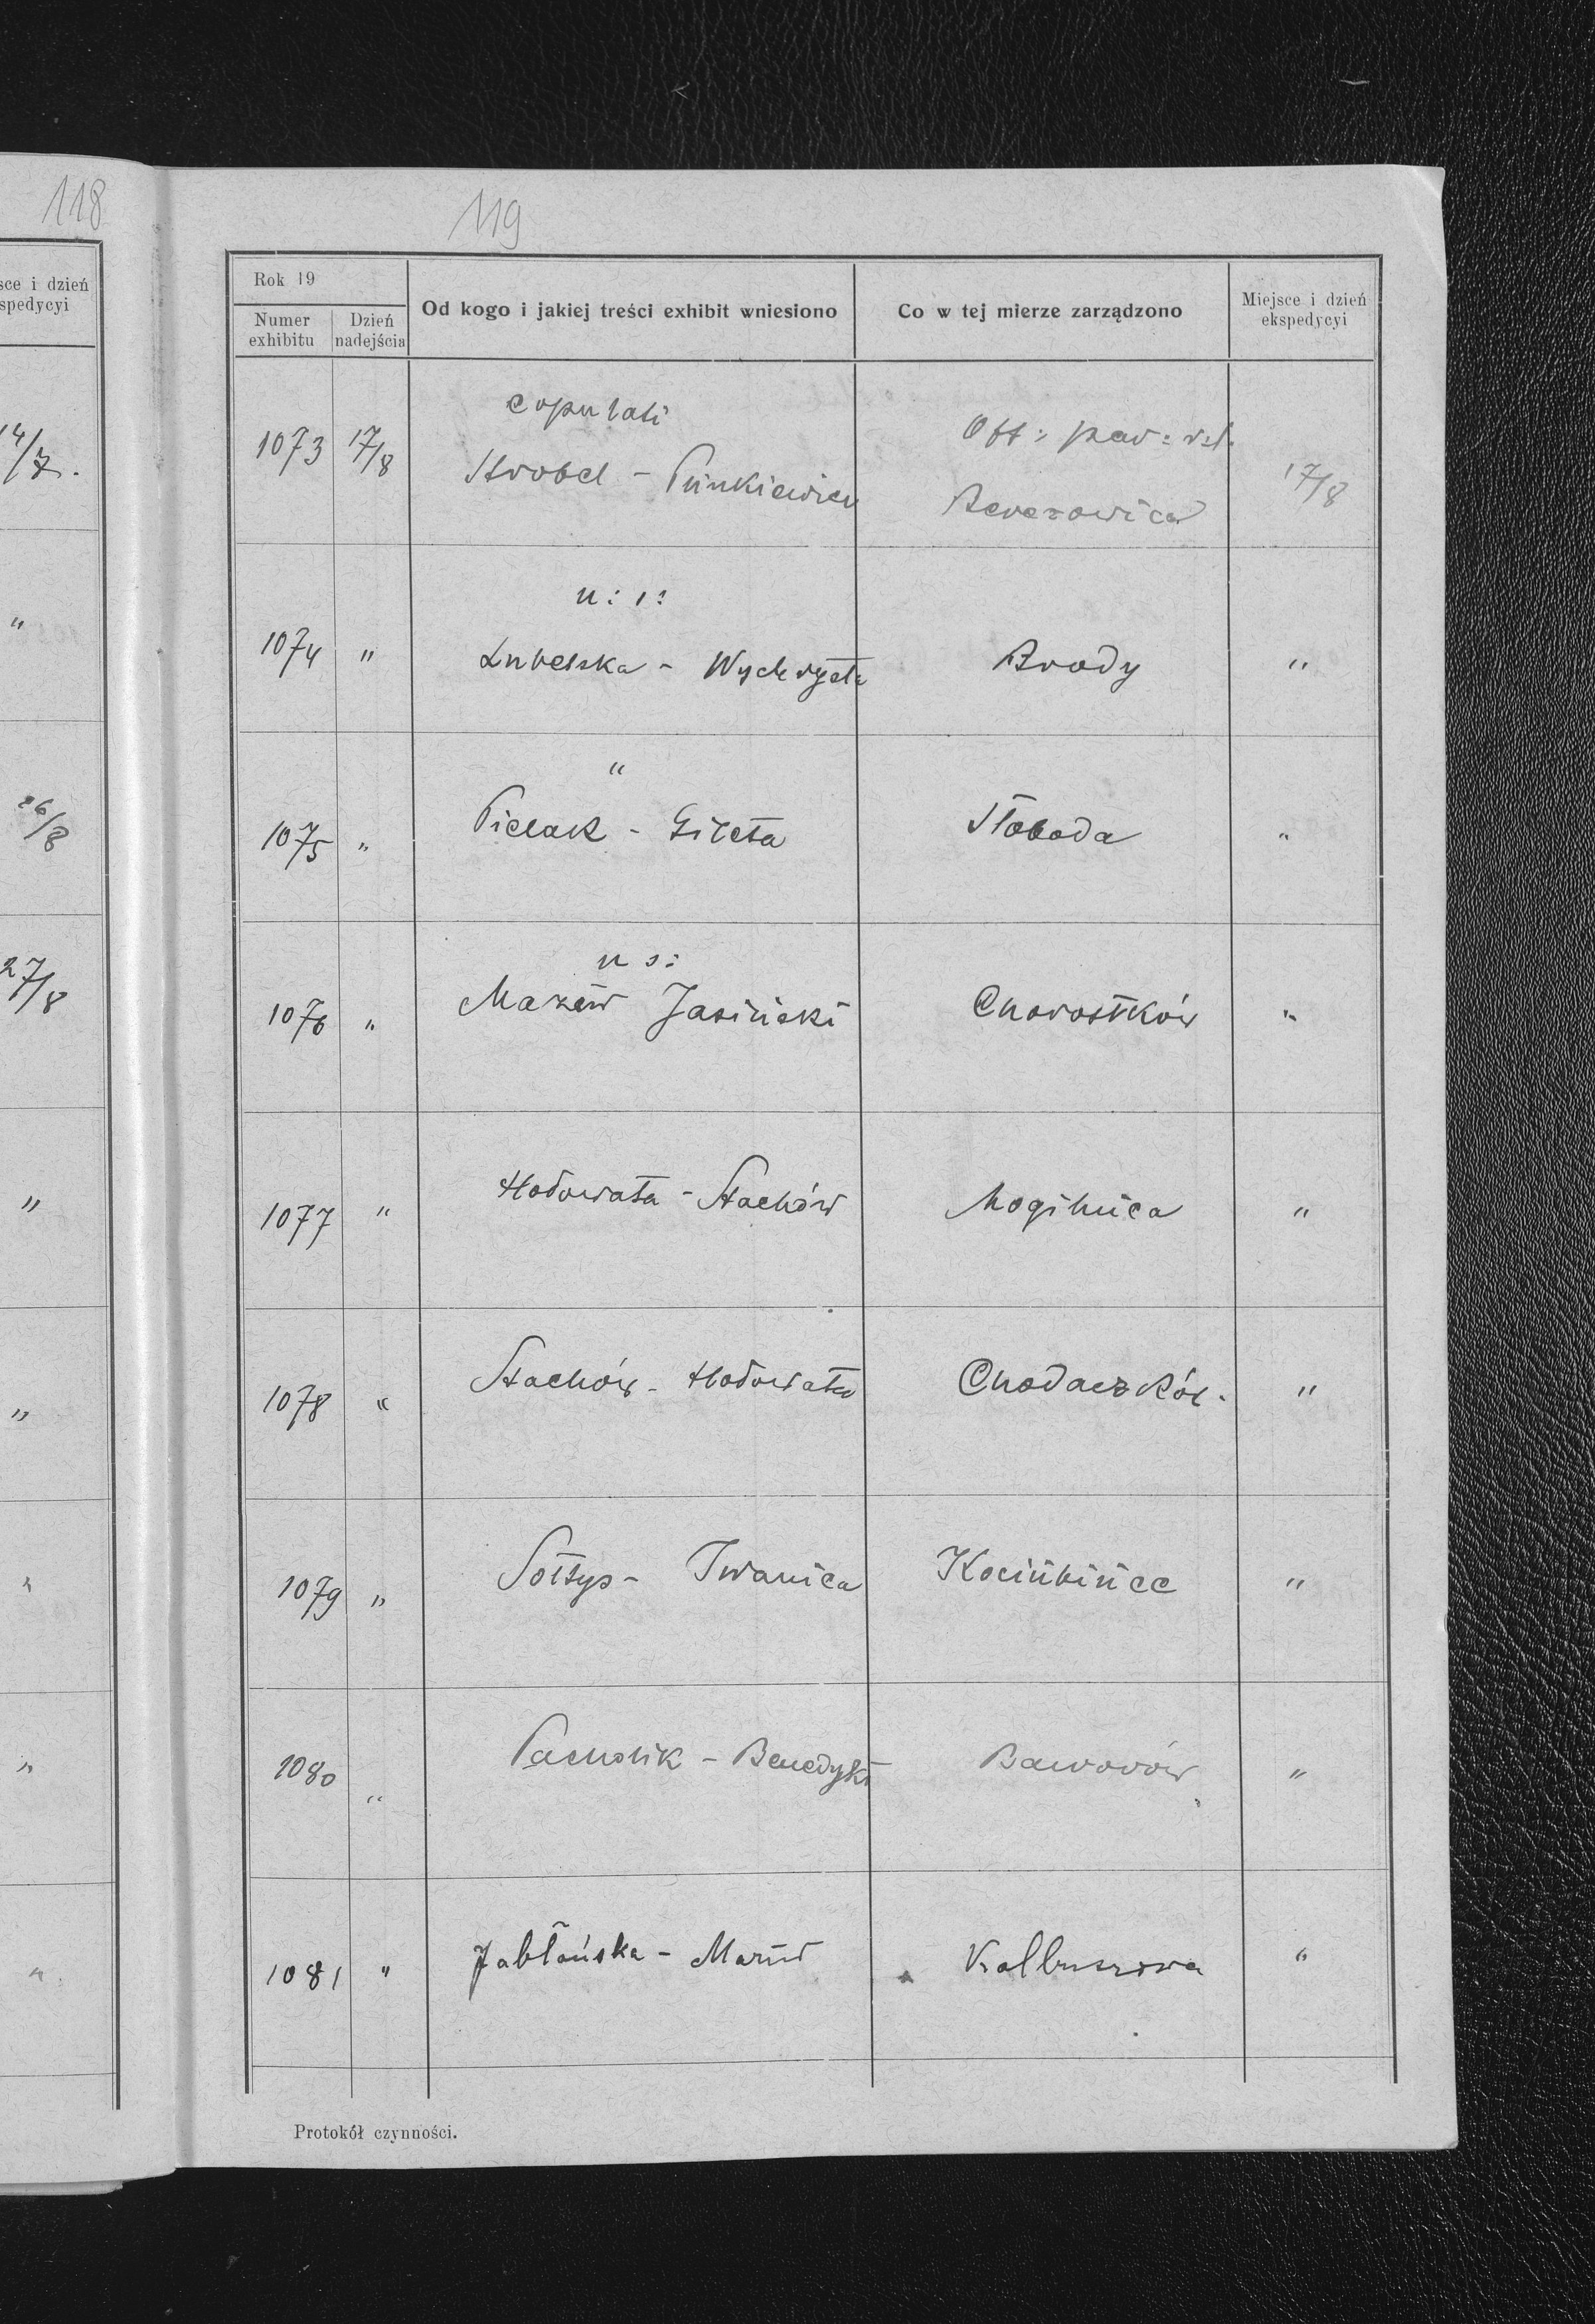 118
119
sce i dzień
spedycyi
14/7.
"
26/8
27/8
"
"
"
"
"
Rok 19
Numer exhibitu
Dzień nadejścia
Od kogo i jakiej treści exhibit wniesiono
Co w tej mierze zarządzono
Miejsce i dzień ekspedycyi
copulati
Off: par: r.l.
1073 17/8 Strobel - Pinkiewicz
17/8
Berezowica
u: s:
1074 " Lubelska - Wychrysta Brody "
"
1075 " Pielak - Gileta Słoboda "
u s:
1076 " Mazur Jasiński Chorostków "
1077 " Hodowata - Stachów Mogilnica "
1078 " Stachów - Hodowata Chodaczków. "
1079 " Sołtys - Iwanica Kociubińce "
1080 " Pacholik - Benedykt Baworów "
1081 " Jabłońska - Mazur Kolbuszowa "
Protokół czynności.